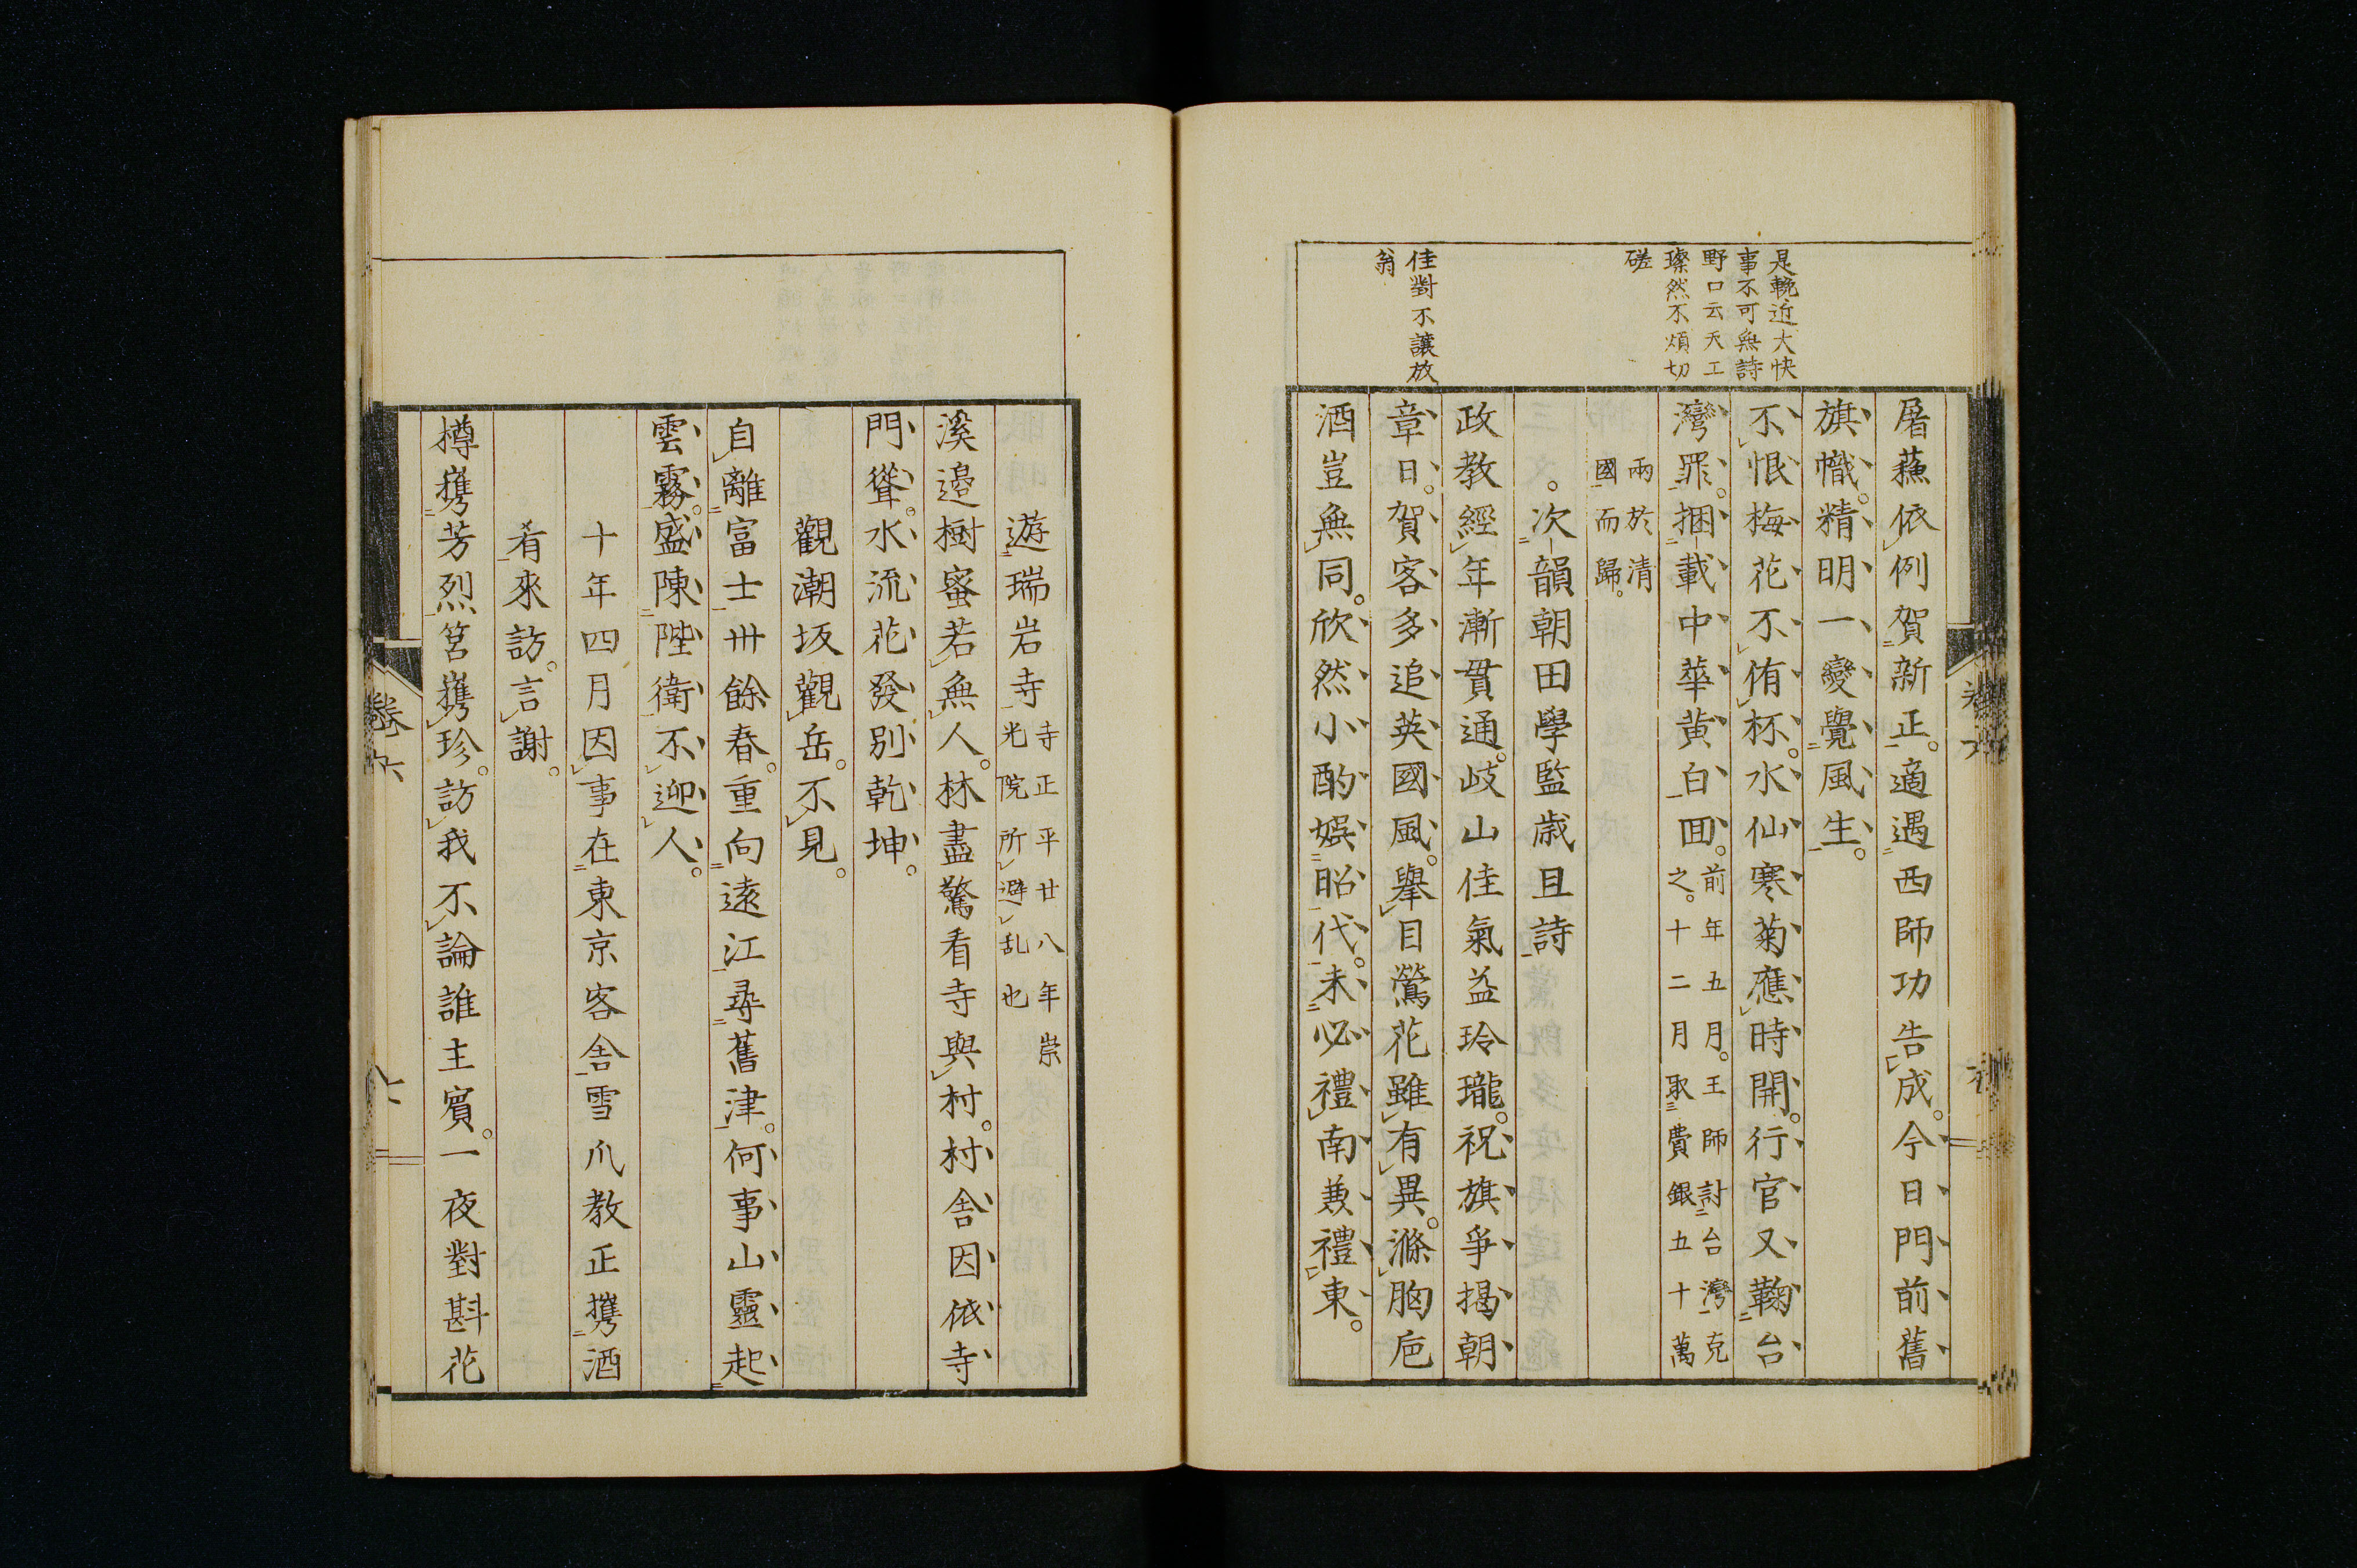 是輓近大快
事不可無詩
野口云天工
璨然不煩切
磋
佳對不讓放
翁
屠蘓依例賀新正。適遇西師功告成。今日門前舊
旗幟。精明一變覺風生。
不恨梅花不侑杯。水仙寒菊應時開。行官又鞠台
灣罪。捆載中華黄白回。前年五月。王師討台灣克
之。十二月取費銀五十萬
兩於清
國而歸。
次韻朝田學監歳旦詩
政教經年漸貫通。歧山佳氣益玲瓏。祝旗爭揭朝
章日。賀客多追英國風。舉目鶯花雖有異。滌胸巵
酒豈無同。欣然小酌娯昭代。未必禮南兼禮東。
遊瑞岩寺寺正平廿八年崇
光院所避乱也
溪邉樹蜜若無人。林盡驚看寺與村。村舎因依寺
門聳。水流花發別乾坤。
觀潮坂觀岳。不見。
自離富士卅餘春。重向遠江尋舊津。何事山靈起
雲霧。盛陳陛衛不迎人。
十年四月因事在東京客舎雪爪教正携酒
肴來訪。言謝。
樽携芳烈筥携珍。訪我不論誰主賓。一夜對斟花
卷六